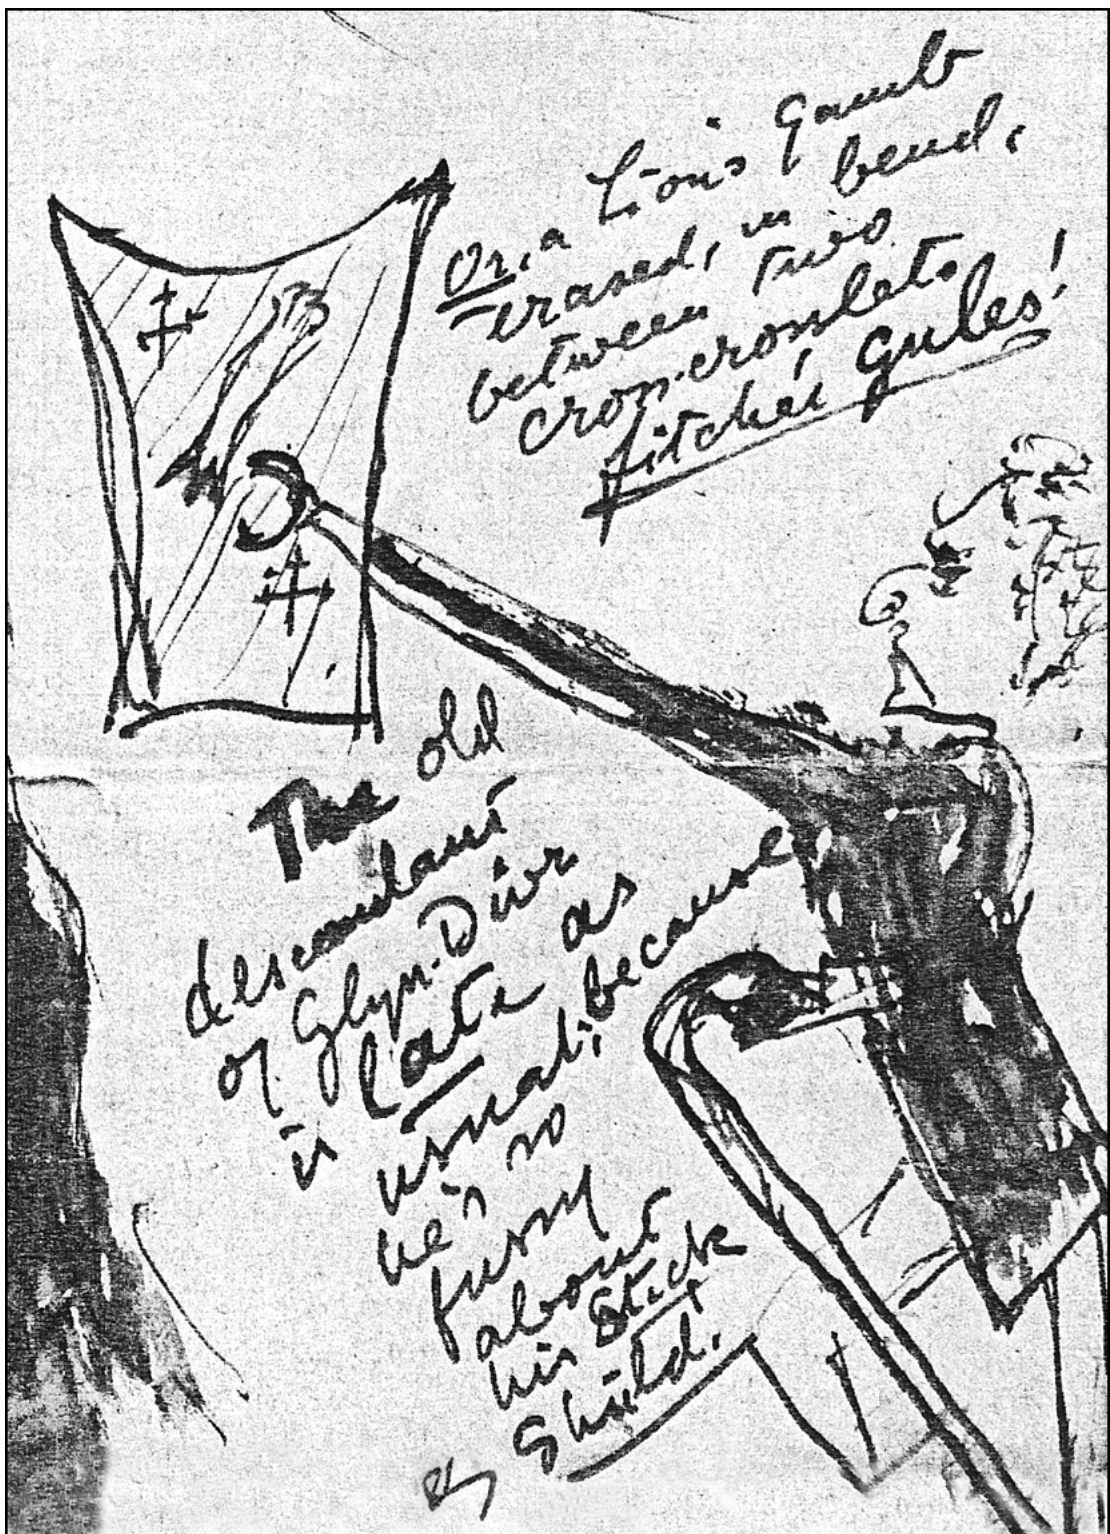 Or, a Lion's gamb
erased, in bend,
between two
cross-crosslets
fitchée gules!
The old
descendant
of Glyn-Dwr
is late as
usual; because
he's so
fussy
about
his Stick
& Shield.